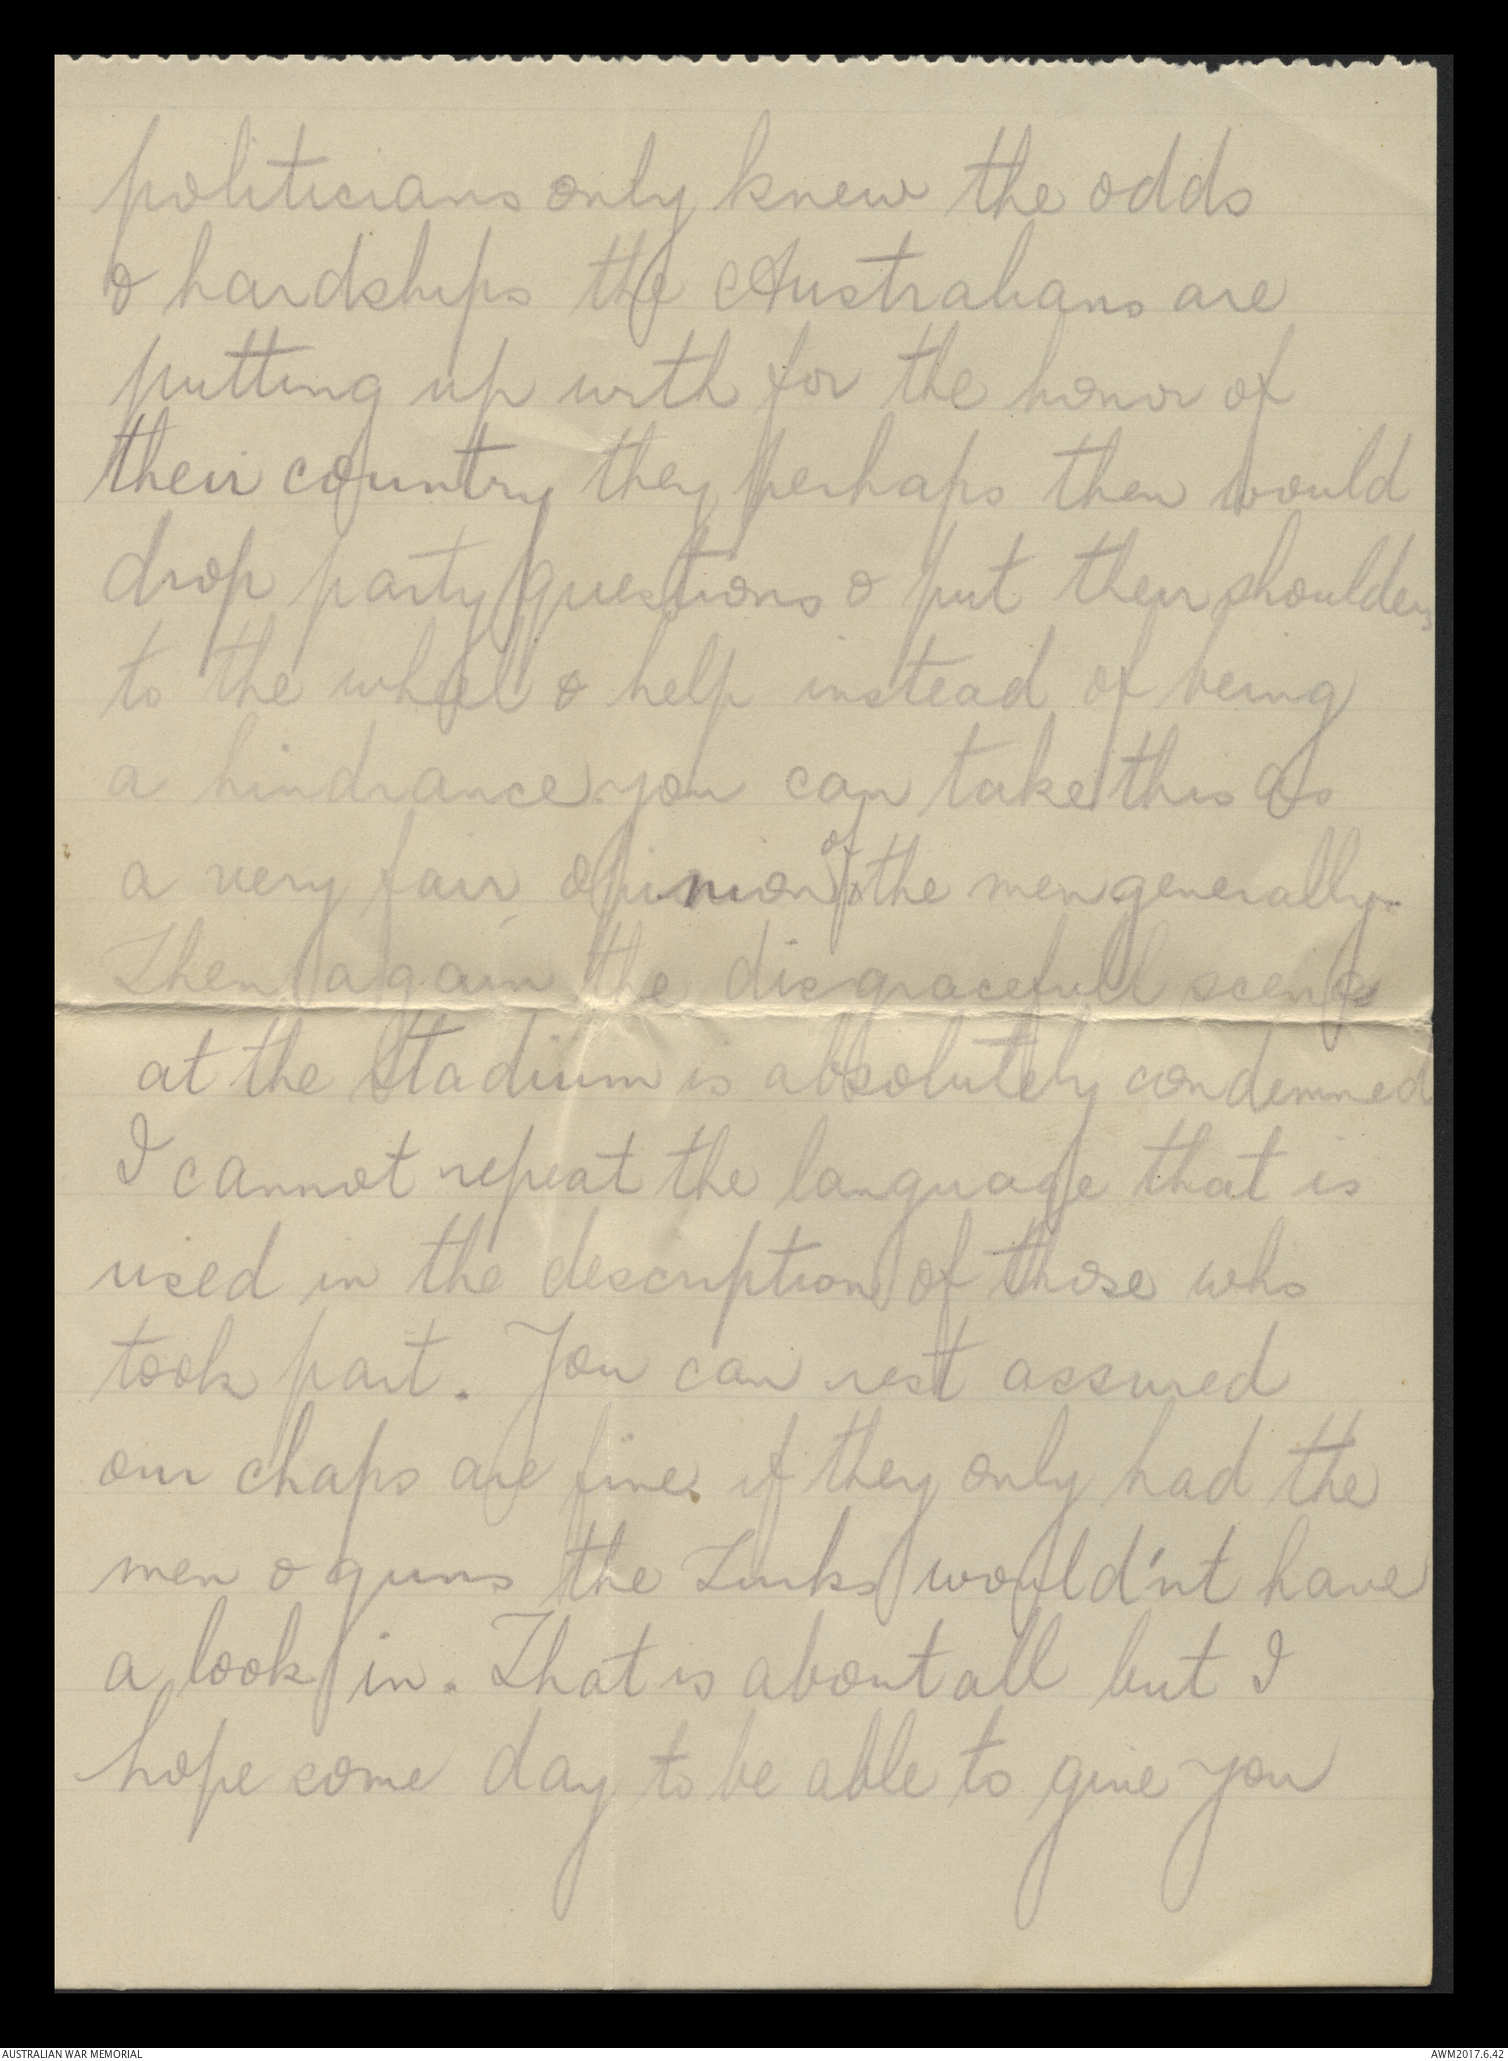 politicians only knew the odds
& hardships the Australians are
putting up with for the honor of
their country they perhaps then would
drop party questions & put their shoulders
to the wheel & help instead of being
a hindrance. you can take this as
a very fair opinion of the men generally.
Then again the disgracefull scenes
at the Stadium is absolutely condemned
I cannot repeat the language that is
used in the description of those who
took part. You can rest assured
our chaps are fine. if they only had the
men & guns the Turks would'nt have
a look in. That is about all but I
hope some day to be able to give you
AUSTRALIAN WAR MEMORIAL
AWM2017.6.42